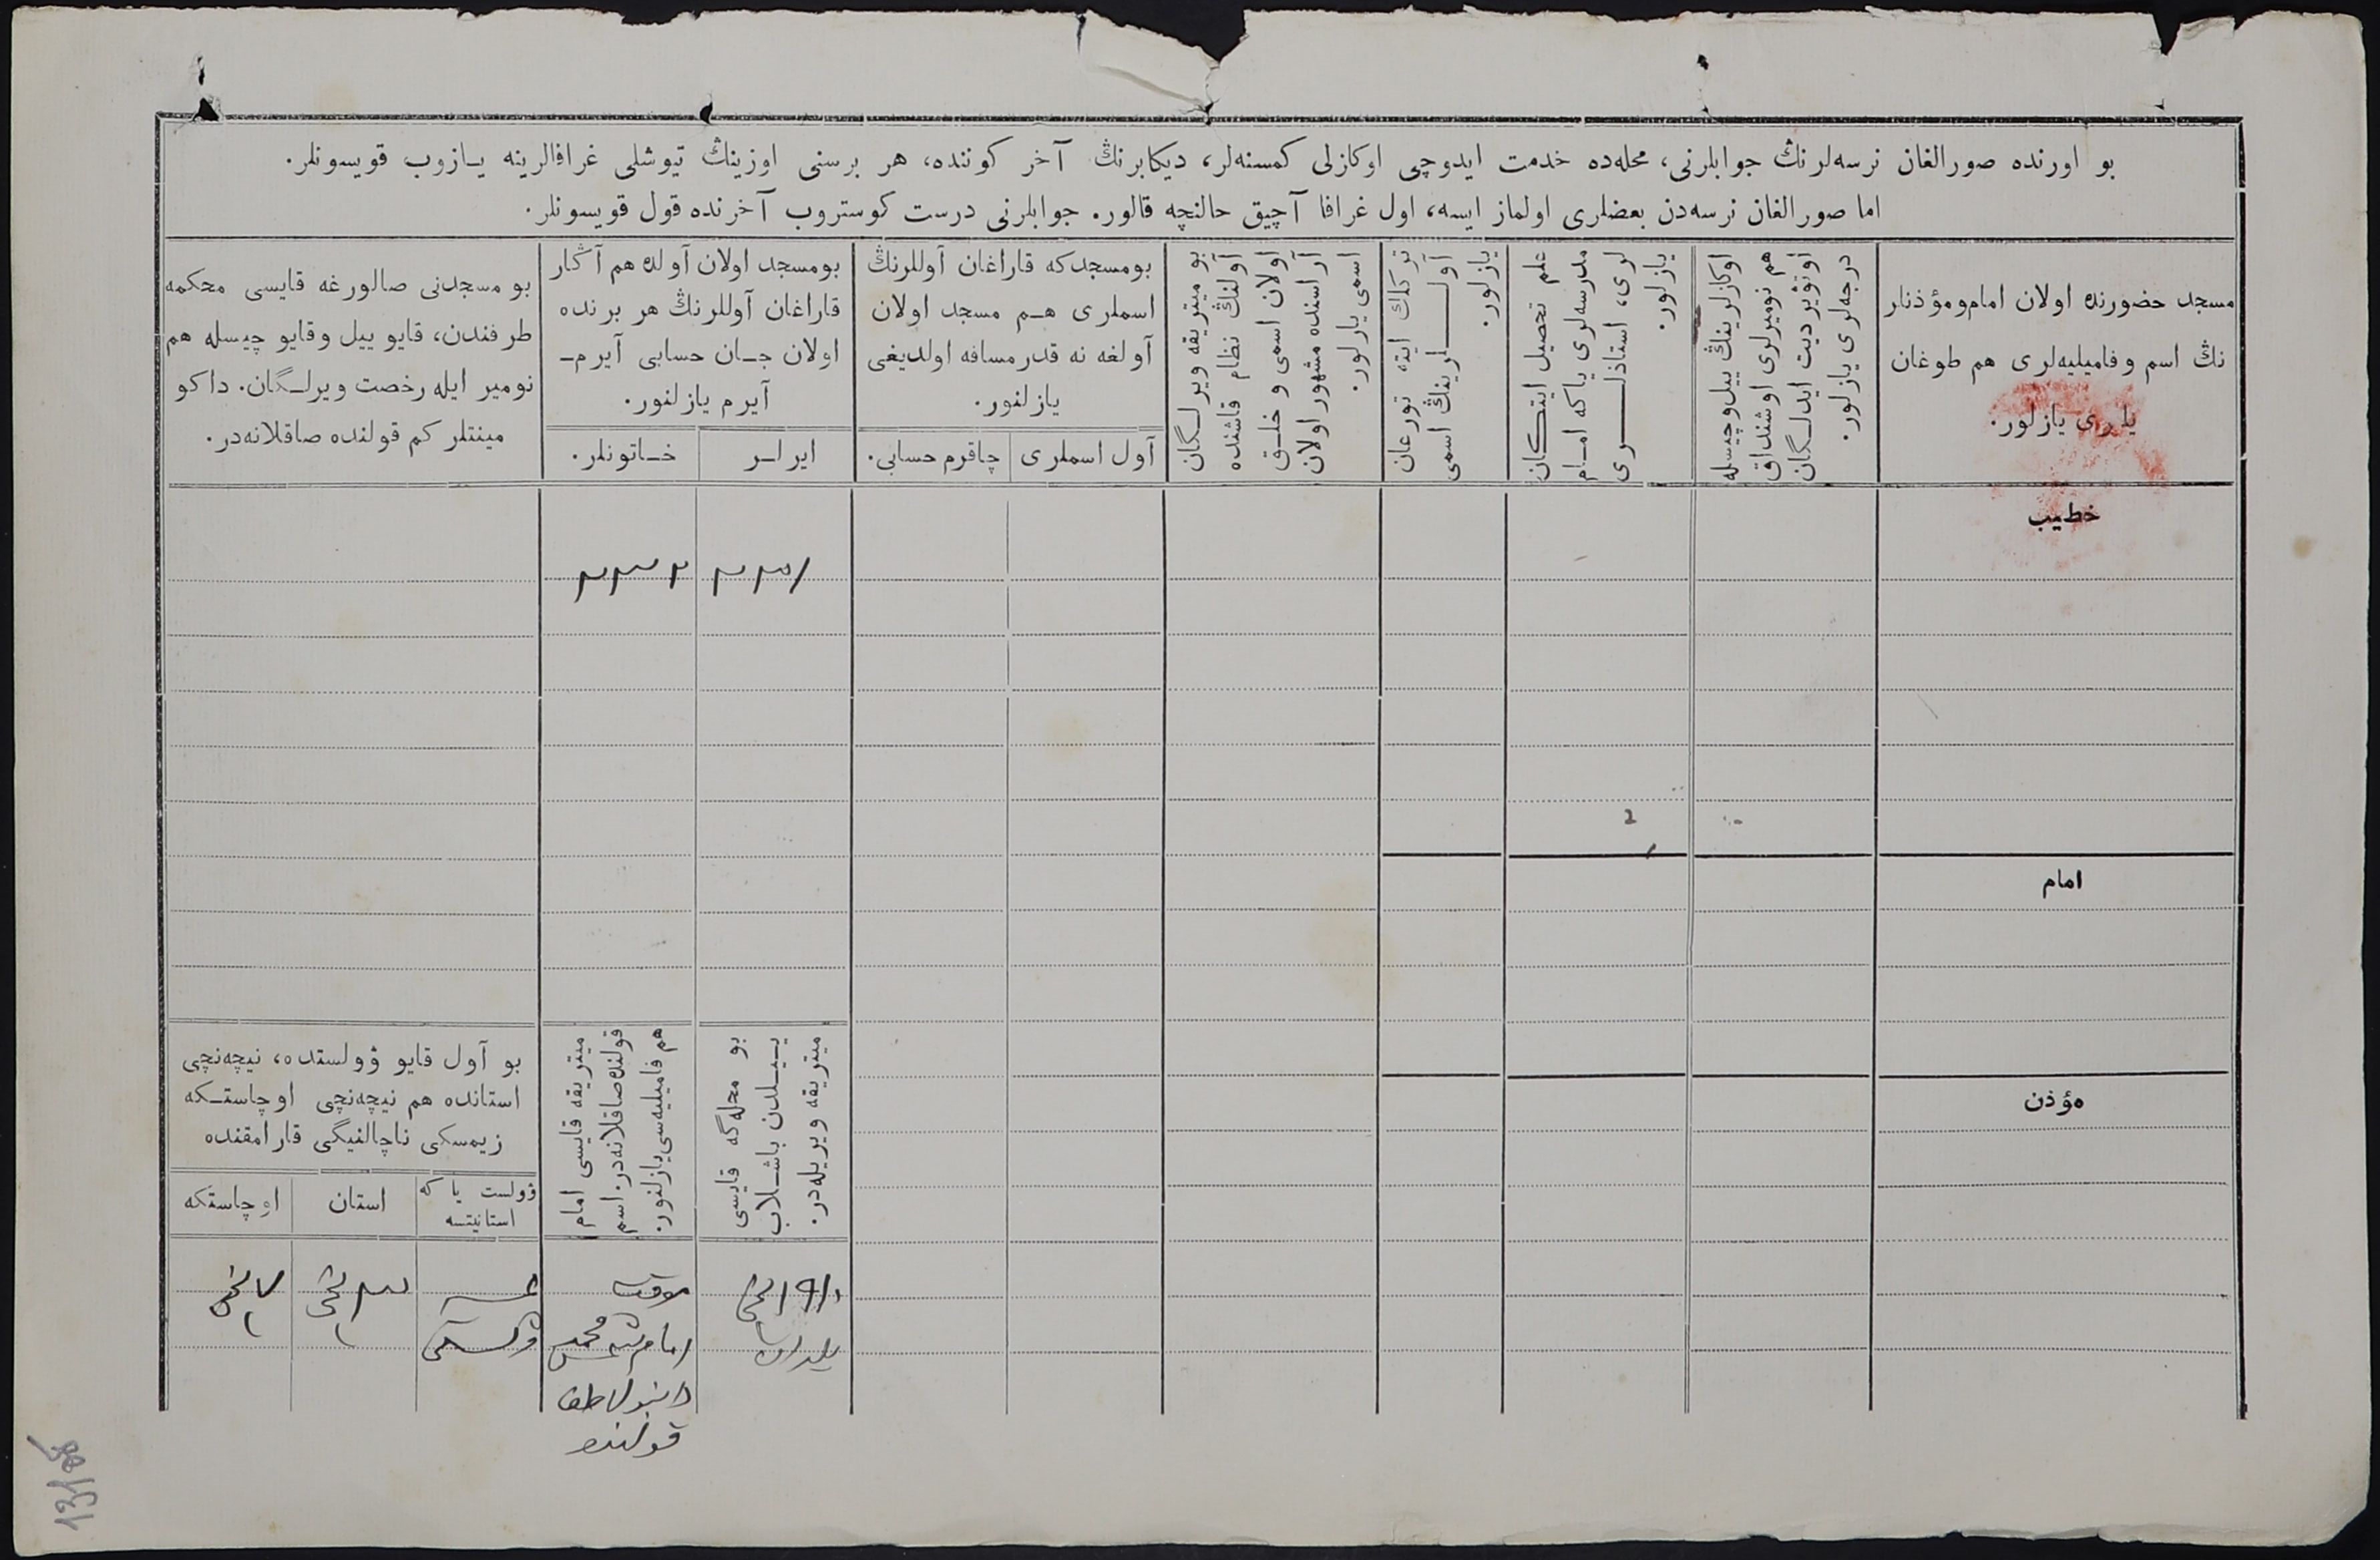 بو اورنده صورالغان نرسه‌لرنڭ جوابلرنی، محله‌ده خدمت ایدوچی اوكازلی كمسنه‌لر، دیكابرنڭ آخر كوننده، هر برسنی اوزینڭ تیوشلی غرافالرینه یـازوب قویسونلر.
اما صورالغان نرسه‌دن بعضلری اولماز ایسه، اول غرافا آچیق حالنچه قالور. جوابلرنی درست كوستروب آخرنده قول قویسونلر.
مسجد حضورنده اولان امام و مؤذنلر
نڭ اسم و فامیلیه‌لری هم طوغان
یللری یازلور.
اوكازلرینڭ ییل و چیسله
هم نومیرلری اوشنداق
اوتۋیردیت ایدلـگان
درجه‌لری یازلور.
علم تحصیل ایتـكان
مدرسه‌لری یاكه امـام
لری، استاذلـری
یازلور.
تركلك ایته تورغان
آولـلرینڭ اسمی
یازلور.
بو میتریقه ویرلـگان
آولنڭ نظام قاشنده
اولان اسمی و خلـق
آراسنده مشهور اولان
اسمی یازلور.
بومسجدكه قاراغان آوللرنڭ
اسملری هـم مسجد اولان
آولغه نه قدر مسافه اولدیغی
یازلنور.
آول اسملری
چاقرم حسابی.
بومسجد اولان آولده هم آڭار
قاراغان آوللرنڭ هر برنده
اولان جـان حسابی آیرم-
آیرم یازلنور.
ایرلـر
خـاتونلر.
بو مسجدنی صالورغه قایسی محكمه
طرفندن، قایو ییل وقایو چیسله هم
نومیر ایله رخصت ویرلـگان. داكو
مینتلر كم قولنده صاقلانه‌در.
خطیب
۳۳۱
۳۳۲
امام
مؤذن
بو محله‌گه قایسی
ییـلدن باشـلاب
میتریقه ویریله‌در.
میتریقه قایسی امام
قولنده صاقلانه‌در. اسم
هم فامیلیه‌سی یازلنور.
بو آول قایو ۋولستده، نیچه‌نچی
استانده هم نیچه‌نچی اوچاستـكه
زیمسكی ناچالنیگی قارامقنده
ۋولست یا كه
استانیتسه
استان
اوچاستكه
موقت
امام
محمد
قولنده
131об